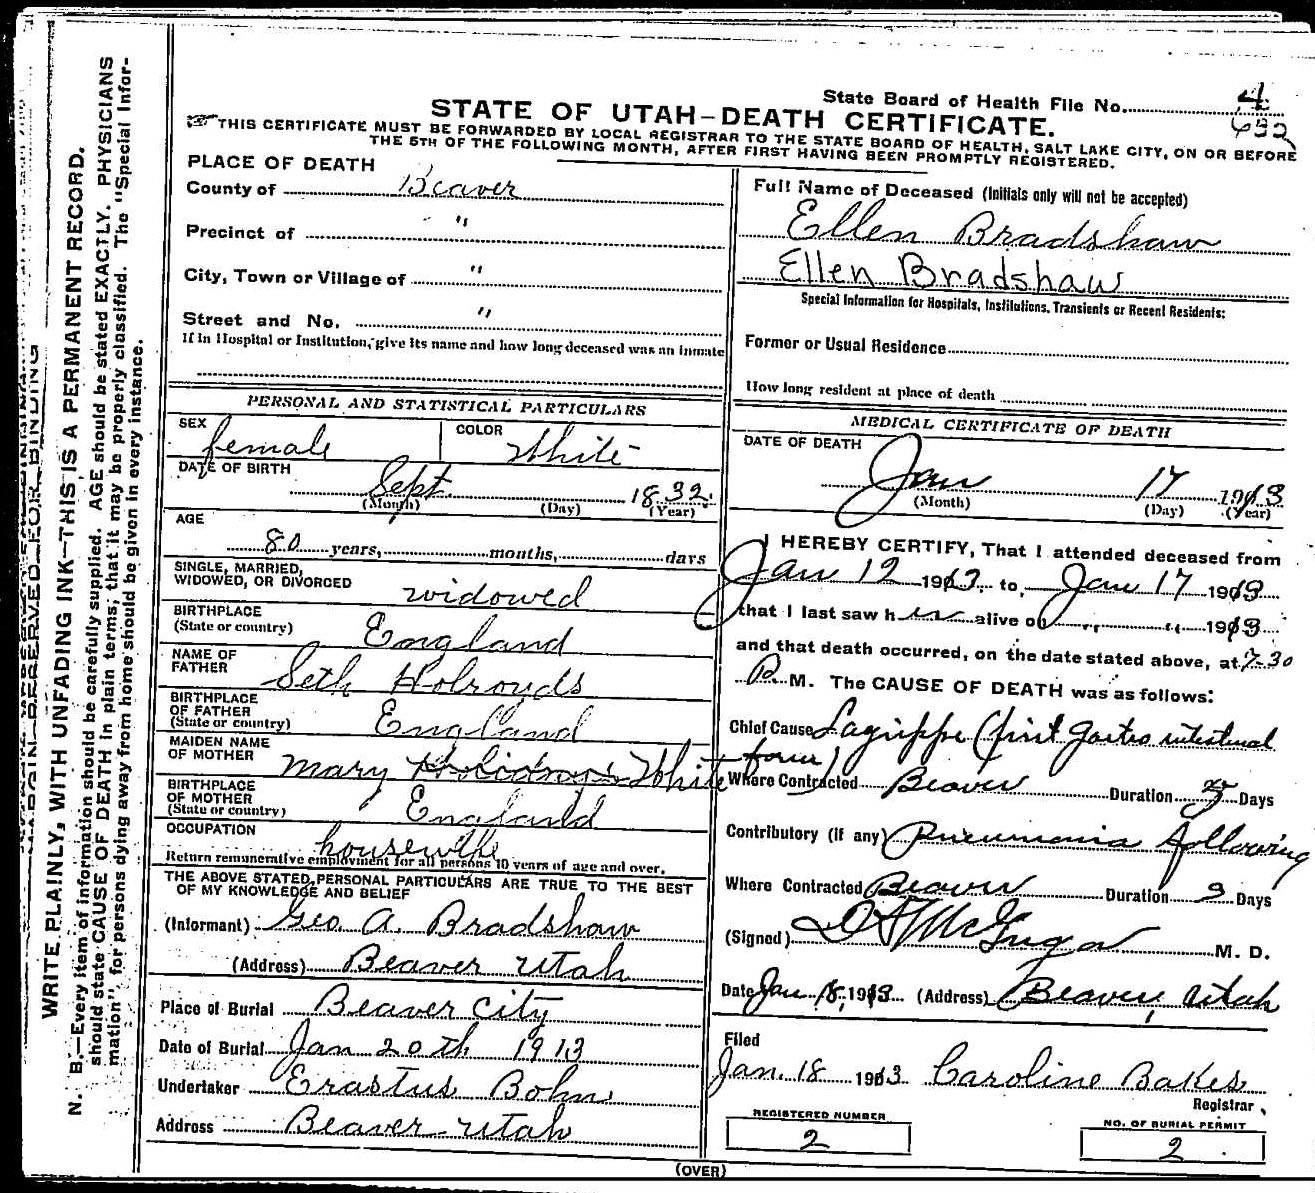 State Board of Health File No. 4
632
STATE OF UTAH-DEATH CERTIFICATE.
THIS CERTIFICATE MUST BE FORWARDED BY LOCAL REGISTRAR TO THE STATE BOARD OF HEALTH, SALT LAKE CITY, ON OR BEFORE
THE 5TH OF THE FOLLOWING MONTH, AFTER FIRST HAVING BEEN PROMPTLY REGISTERED.
WRITE PLAINLY, WITH UNFADING INK—THIS IS A PERMANENT RECORD.
N. B.—Every item of information should be carefully supplied. AGE should be stated EXACTLY. PHYSICIANS
should state CAUSE OF DEATH in plain terms, that it may be properly classified. The "Special Infor-
mation" for persons dying away from home should be given in every instance.
PLACE OF DEATH
County of Beaver
Precinct of "
City, Town or Village of "
Street and No. "
If in Hospital or Institution, give its name and how long deceased was an inmate
PERSONAL AND STATISTICAL PARTICULARS
SEX female COLOR White
DATE OF BIRTH
Sept 1832
(Month) (Day) (Year)
AGE
80 years, months, days
SINGLE, MARRIED,
WIDOWED, OR DIVORCED widowed
BIRTHPLACE
(State or country) England
NAME OF
FATHER Seth Holroyds
BIRTHPLACE
OF FATHER
(State or country) England
MAIDEN NAME
OF MOTHER Mary White
BIRTHPLACE
OF MOTHER
(State or country) England
OCCUPATION
housewife
Return remunerative employment for all persons 10 years of age and over.
THE ABOVE STATED PERSONAL PARTICULARS ARE TRUE TO THE BEST
OF MY KNOWLEDGE AND BELIEF
(Informant) Geo A. Bradshaw
(Address) Beaver Utah
Place of Burial Beaver City
Date of Burial Jan 20th 1913
Undertaker Erastus Bohn
Address Beaver Utah
Full Name of Deceased (Initials only will not be accepted)
Ellen Bradshaw
Ellen Bradshaw
Special Information for Hospitals, Institutions, Transients or Recent Residents:
Former or Usual Residence
How long resident at place of death
MEDICAL CERTIFICATE OF DEATH
DATE OF DEATH
Jan 17 1913
(Month) (Day) (Year)
I HEREBY CERTIFY, That I attended deceased from
Jan 12 1913 to Jan 17 1913
that I last saw her alive on " " 1913
and that death occurred, on the date stated above, at 7-30
P. M. The CAUSE OF DEATH was as follows:
Chief Cause Lagrippe (first gastro intestinal
form)
Where Contracted Beaver Duration Days
Contributory (if any) Pneumonia following
Where Contracted Beaver Duration 3 Days
(Signed) M. D.
Date Jan 18, 1913 (Address) Beaver, Utah
Filed
Jan. 18 1913 Caroline Bakes
Registrar.
REGISTERED NUMBER
2
NO. OF BURIAL PERMIT
2
(OVER)